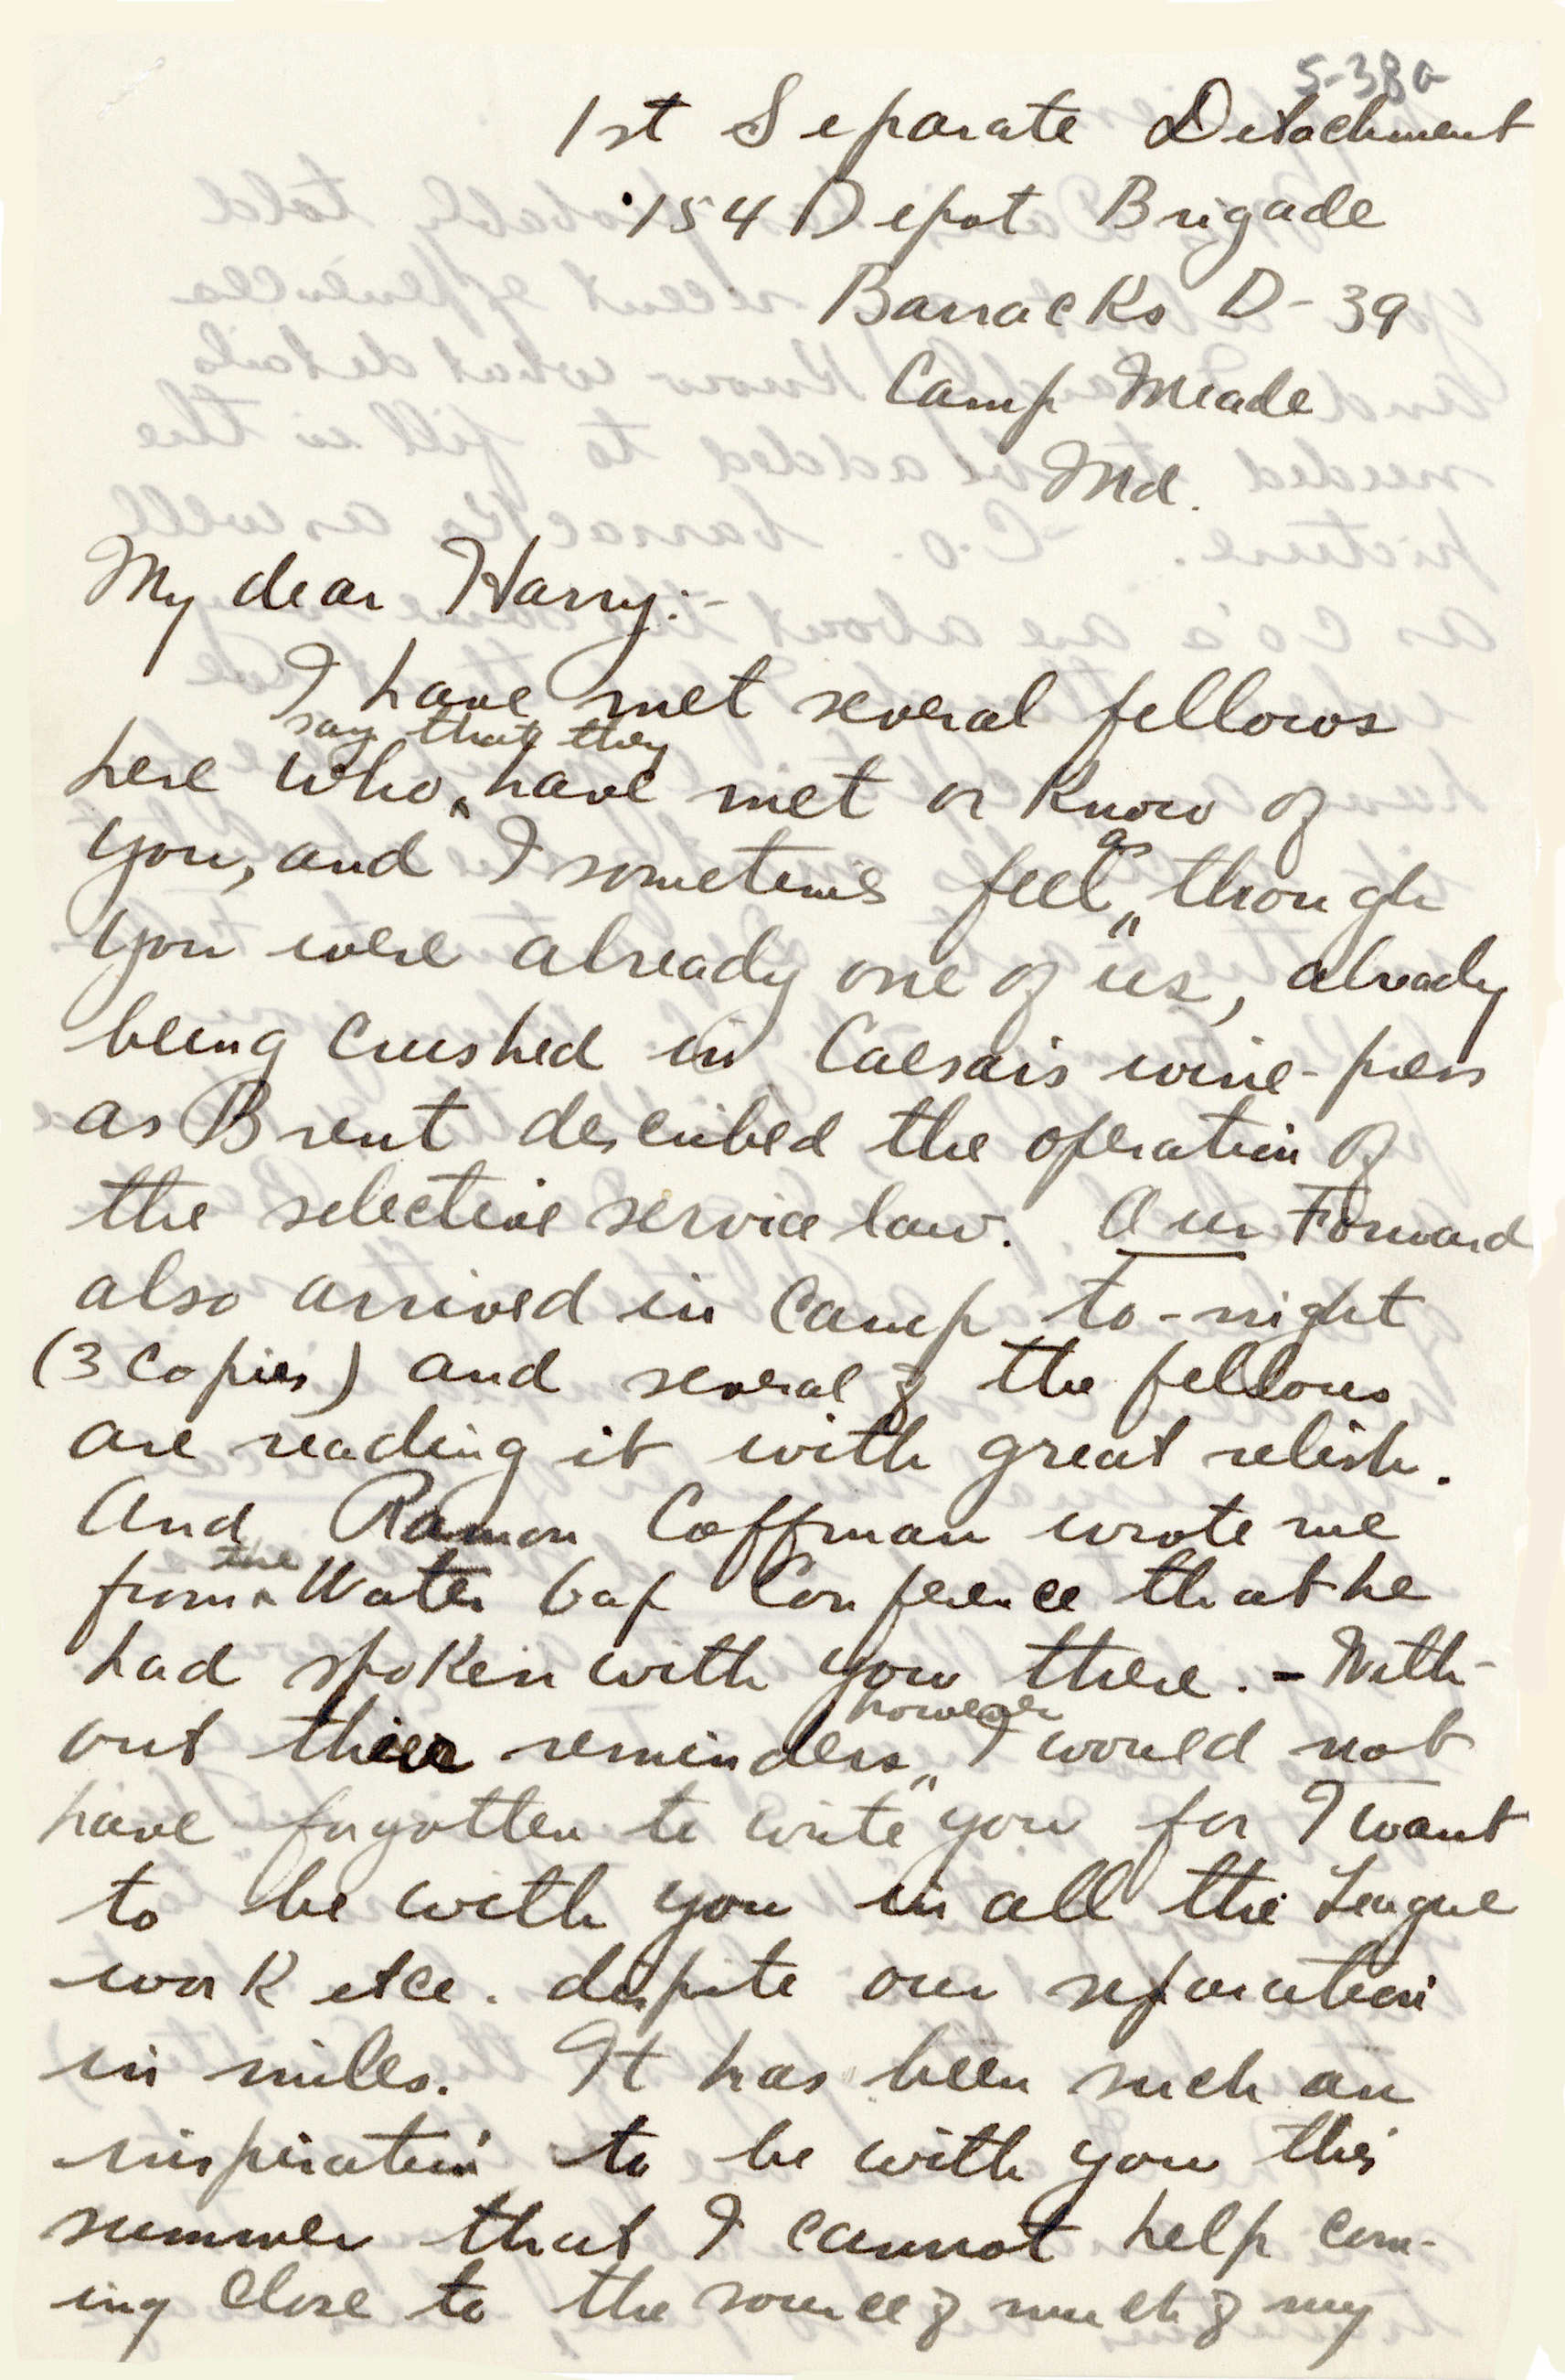 5-38a
1st Separate Detachment
154 Depot Brigade
Barracks D-39
Camp Meade
Md.
My dear Harry:-
I have met several fellows
say that they
here who ‸ have met or know of
as
you, and I sometimes feel ‸ though
you were already one of us, already
being crushed in Caesars wine-press
as Brent described the operation of
the selective service law. Our Forward
also arrived in camp to-night
(3 copies) and several of the fellows
are reading it with great relish.
And Ramon Coffman wrote me
the
from ‸ Water Gap Conference that he
had spoken with you there. - With-
however
out these reminders ‸ I would not
have forgotten to write you for I want
to be with you in all the League
work etce. despite our separation
in miles. It has been such an
inspiration to be with you this
summer that I cannot help com-
ing close to the source of much of my